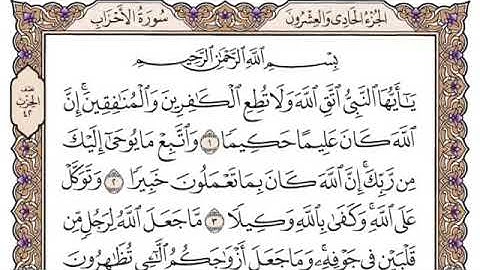 الجُزءُ الحَادِى وَالعِشرُونَ
سُورَةُ الأَحْزَابِ
بِسْمِ ٱللَّهِ ٱلرَّحْمَٰنِ ٱلرَّحِيمِ
يَٰٓأَيُّهَا ٱلنَّبِىُّ ٱتَّقِ ٱللَّهَ وَلَا تُطِعِ ٱلْكَٰفِرِينَ وَٱلْمُنَٰفِقِينَۗ إِنَّ
نصف الحِزْب ٤٢
ٱللَّهَ كَانَ عَلِيمًا حَكِيمًا ١ وَٱتَّبِعْ مَا يُوحَىٰٓ إِلَيْكَ
مِن رَّبِّكَۚ إِنَّ ٱللَّهَ كَانَ بِمَا تَعْمَلُونَ خَبِيرًا ٢ وَتَوَكَّلْ
عَلَى ٱللَّهِۚ وَكَفَىٰ بِٱللَّهِ وَكِيلًا ٣ مَّا جَعَلَ ٱللَّهُ لِرَجُلٍ مِّن
قَلْبَيْنِ فِى جَوْفِهِۦۚ وَمَا جَعَلَ أَزْوَٰجَكُمُ ٱلَّٰٓـِٔى تُظَٰهِرُونَ